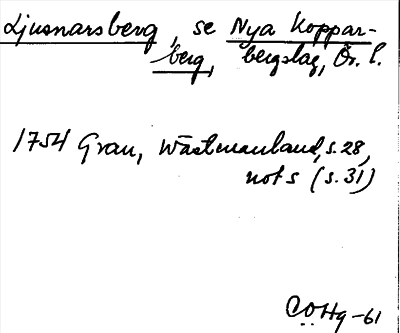 Ljusnarsberg, se Nya Koppar-
berg, bergslag, Ör. l.
1754 Grau, Wästmanland, s. 28,
not s (s. 31)
COHg -61